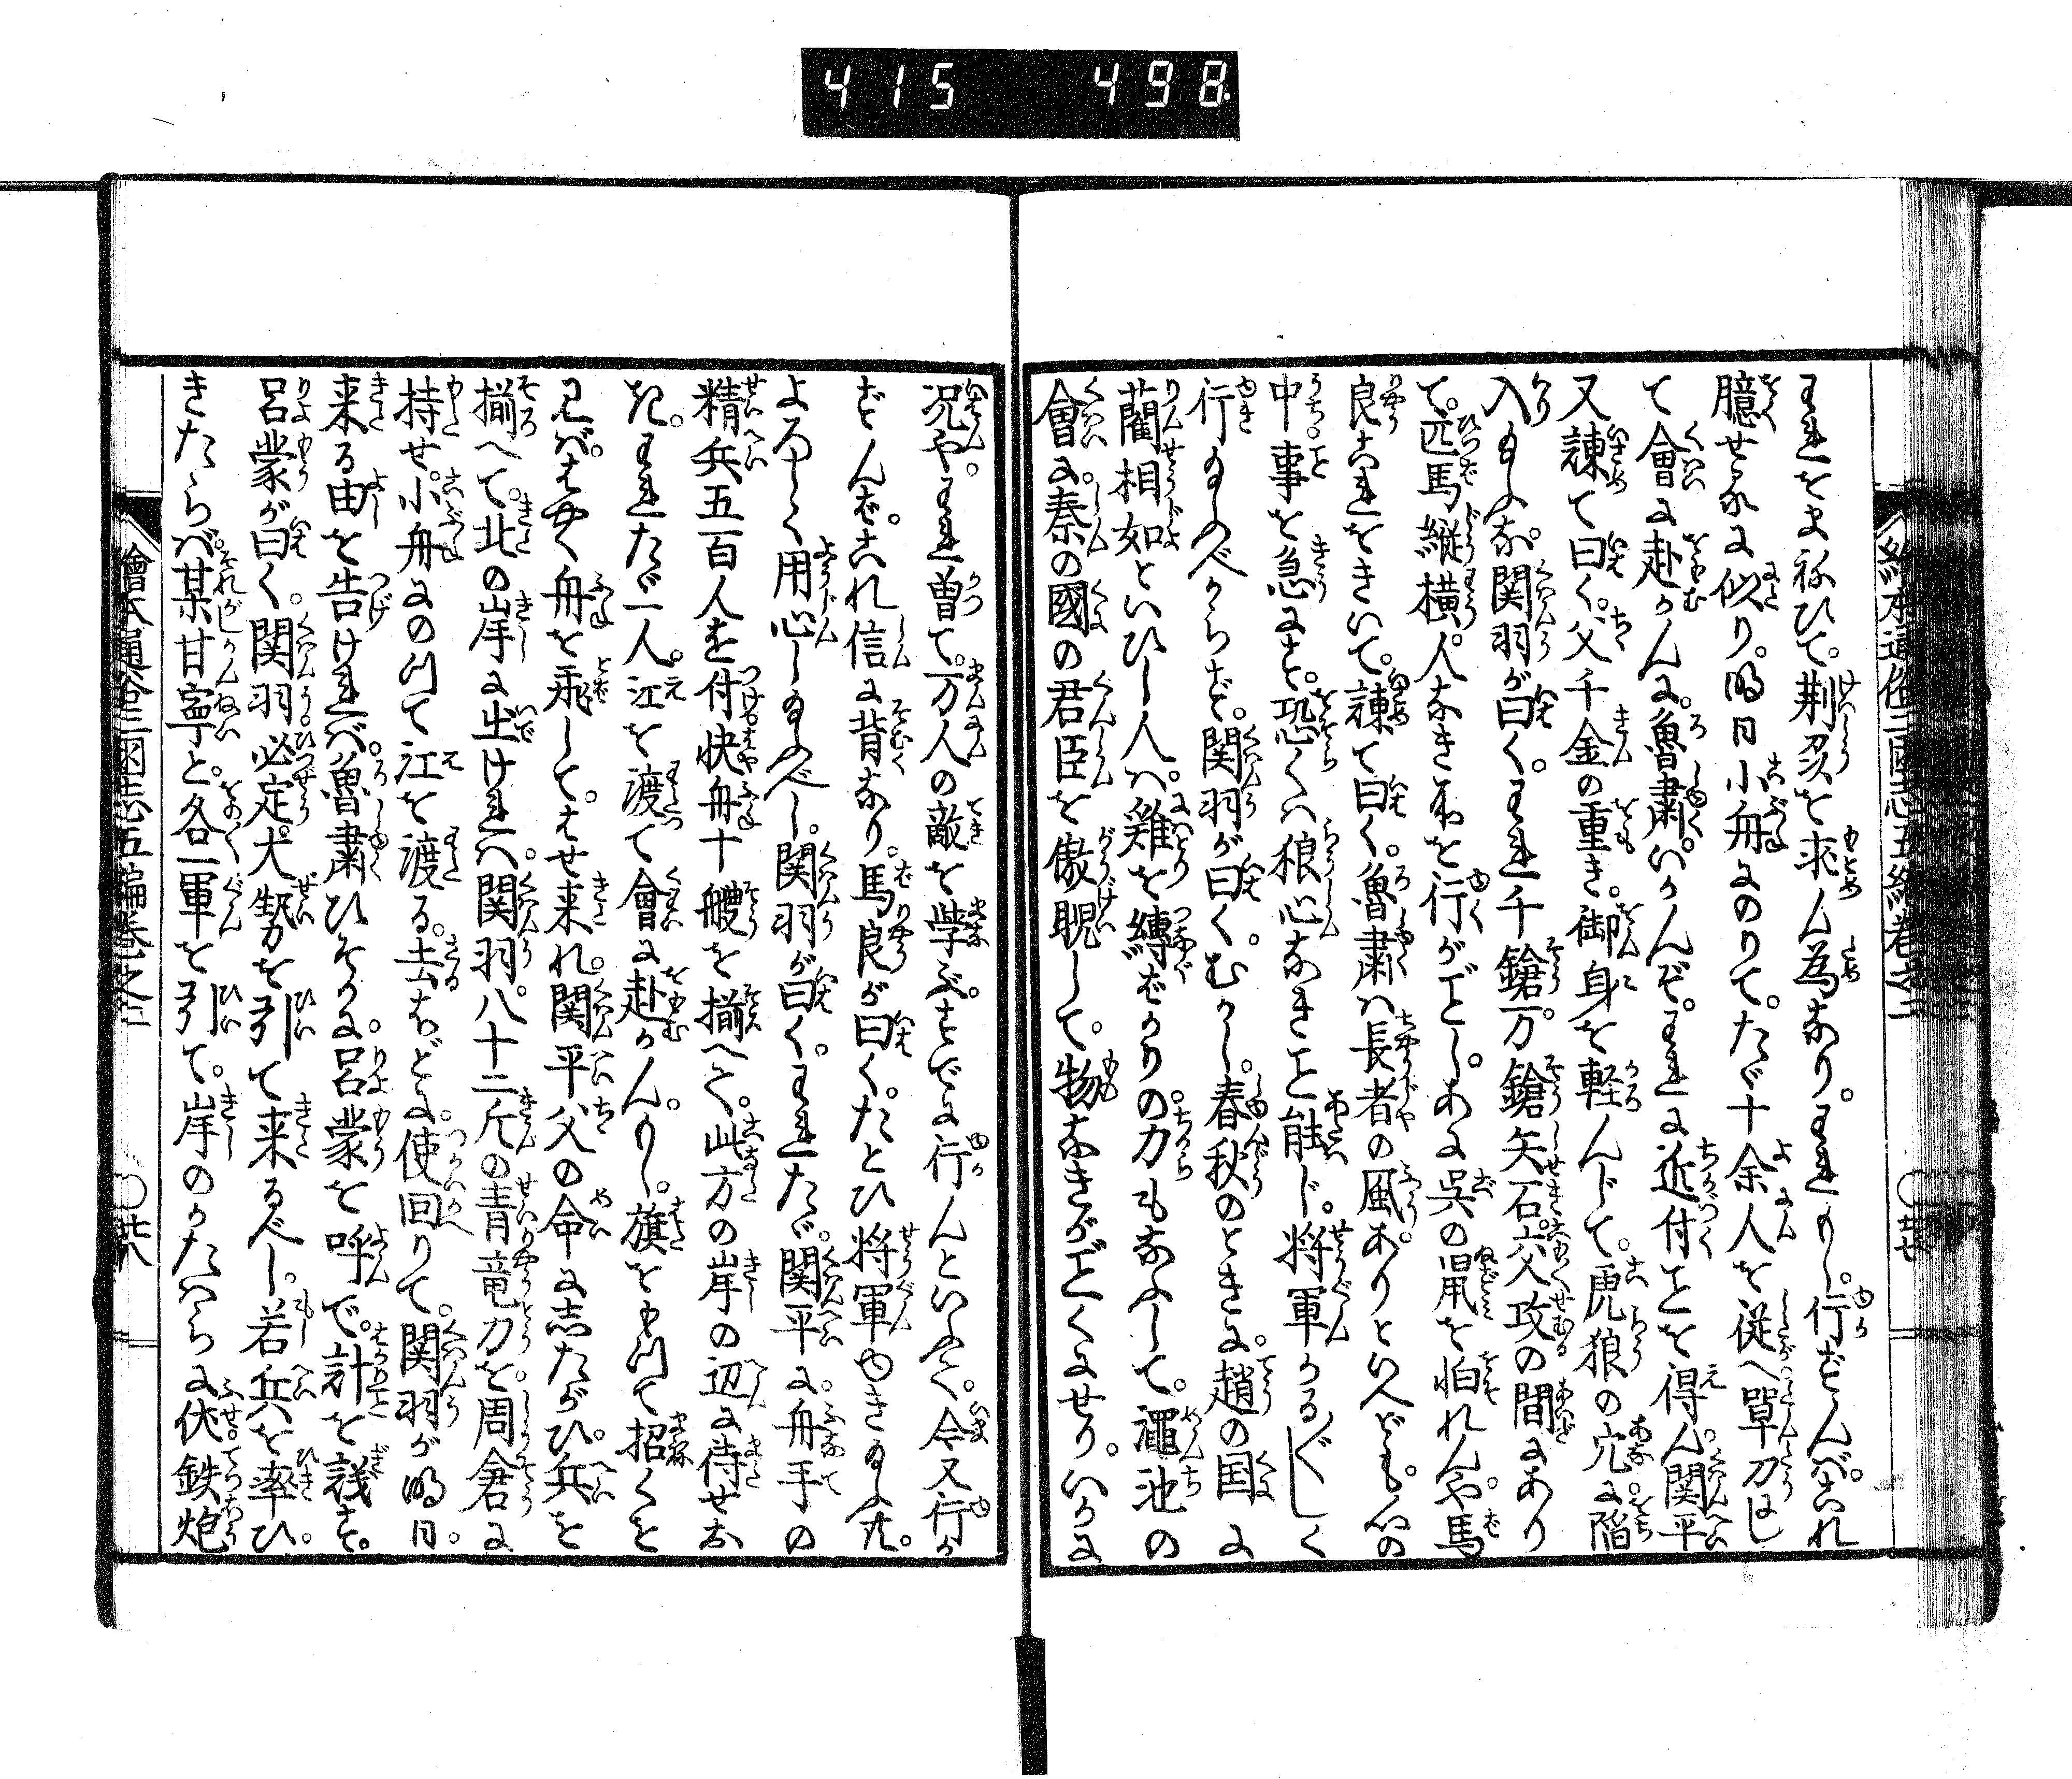 415 498
繪本通俗三國志五編卷之二 〇廿七
われをまねひて。荊州を求ん為なり。われもし。行ずんば。これ
臆せるに似り。明日小舟にのりて。たゞ十余人を従へ單刀にし
て會に赴かんに。魯粛。いかんぞ。われに近付ことを得ん。関平
又諫て曰く。父千金の重き。御身を軽んじて。虎狼の穴に陥
入り給ふな。関羽が曰く。われ千鎗万鎗矢石交攻の間にあり
て。匹馬縦横。人なき所を行がごとし。あに呉の鼠を怕れんや。馬
良これをきいて。諫て曰く。魯粛ハ長者の風ありといへども。心の
中事を急にす。恐くハ狼心なきこと能じ。将軍かる〴〵しく
行給ふべからず。関羽が曰く。むかし。春秋のときに。趙の国に
藺相如といひし人ハ。雞を縛ばかりの力もなふして。澠池の
會に。秦の國の君臣を傲睨して。物なきがごとくにせり。いかに
況や。われ曽て。万人の敵を学ぶ。すでに行んといふて。今又行か
ずんば。これ信に背なり。馬良が曰く。たとひ将軍ゆき給ふ共。
よろしく用心し給ふべし。関羽が曰く。われたゞ。関平に。舟手の
精兵五百人を付。快舟十艘を揃へて。此方の岸の辺に待せお
き。われたゞ一人。江を渡て會に赴かん。もし。旗をもつて招くを
見ば。はやく舟を飛して。はせ来れ。関平父の命にしたがひ。兵を
揃へて。北の岸に出けれハ。関羽。八十二斤の青竜刀を。周倉に
持せ。小舟にのつて江を渡る。去ほどに。使回りて。関羽が明日。
来る由を告けれバ。魯粛ひそかに。呂蒙を呼で。計を議す。
呂蒙が曰く。関羽必定。大勢を引て来るべし。若兵を率ひ。
きたらバ。某甘寧と。各一軍を引て。岸のかたハらに伏。鉄炮
繪本通俗三國志五編卷之二 〇廿八